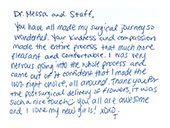 Dr. Messa and Staff,
You have all made my surgical journey so
wonderful. Your kindness and compassion
made the entire process that much more
pleasant and comfortable. I was very
nervous going into the whole process and
came out of it confident that I made the
100% right choice, all around. Thank you for
the post-surgical delivery of flowers, it was
such a nice touch. You all are awesome
and I love my new girls! xoxo